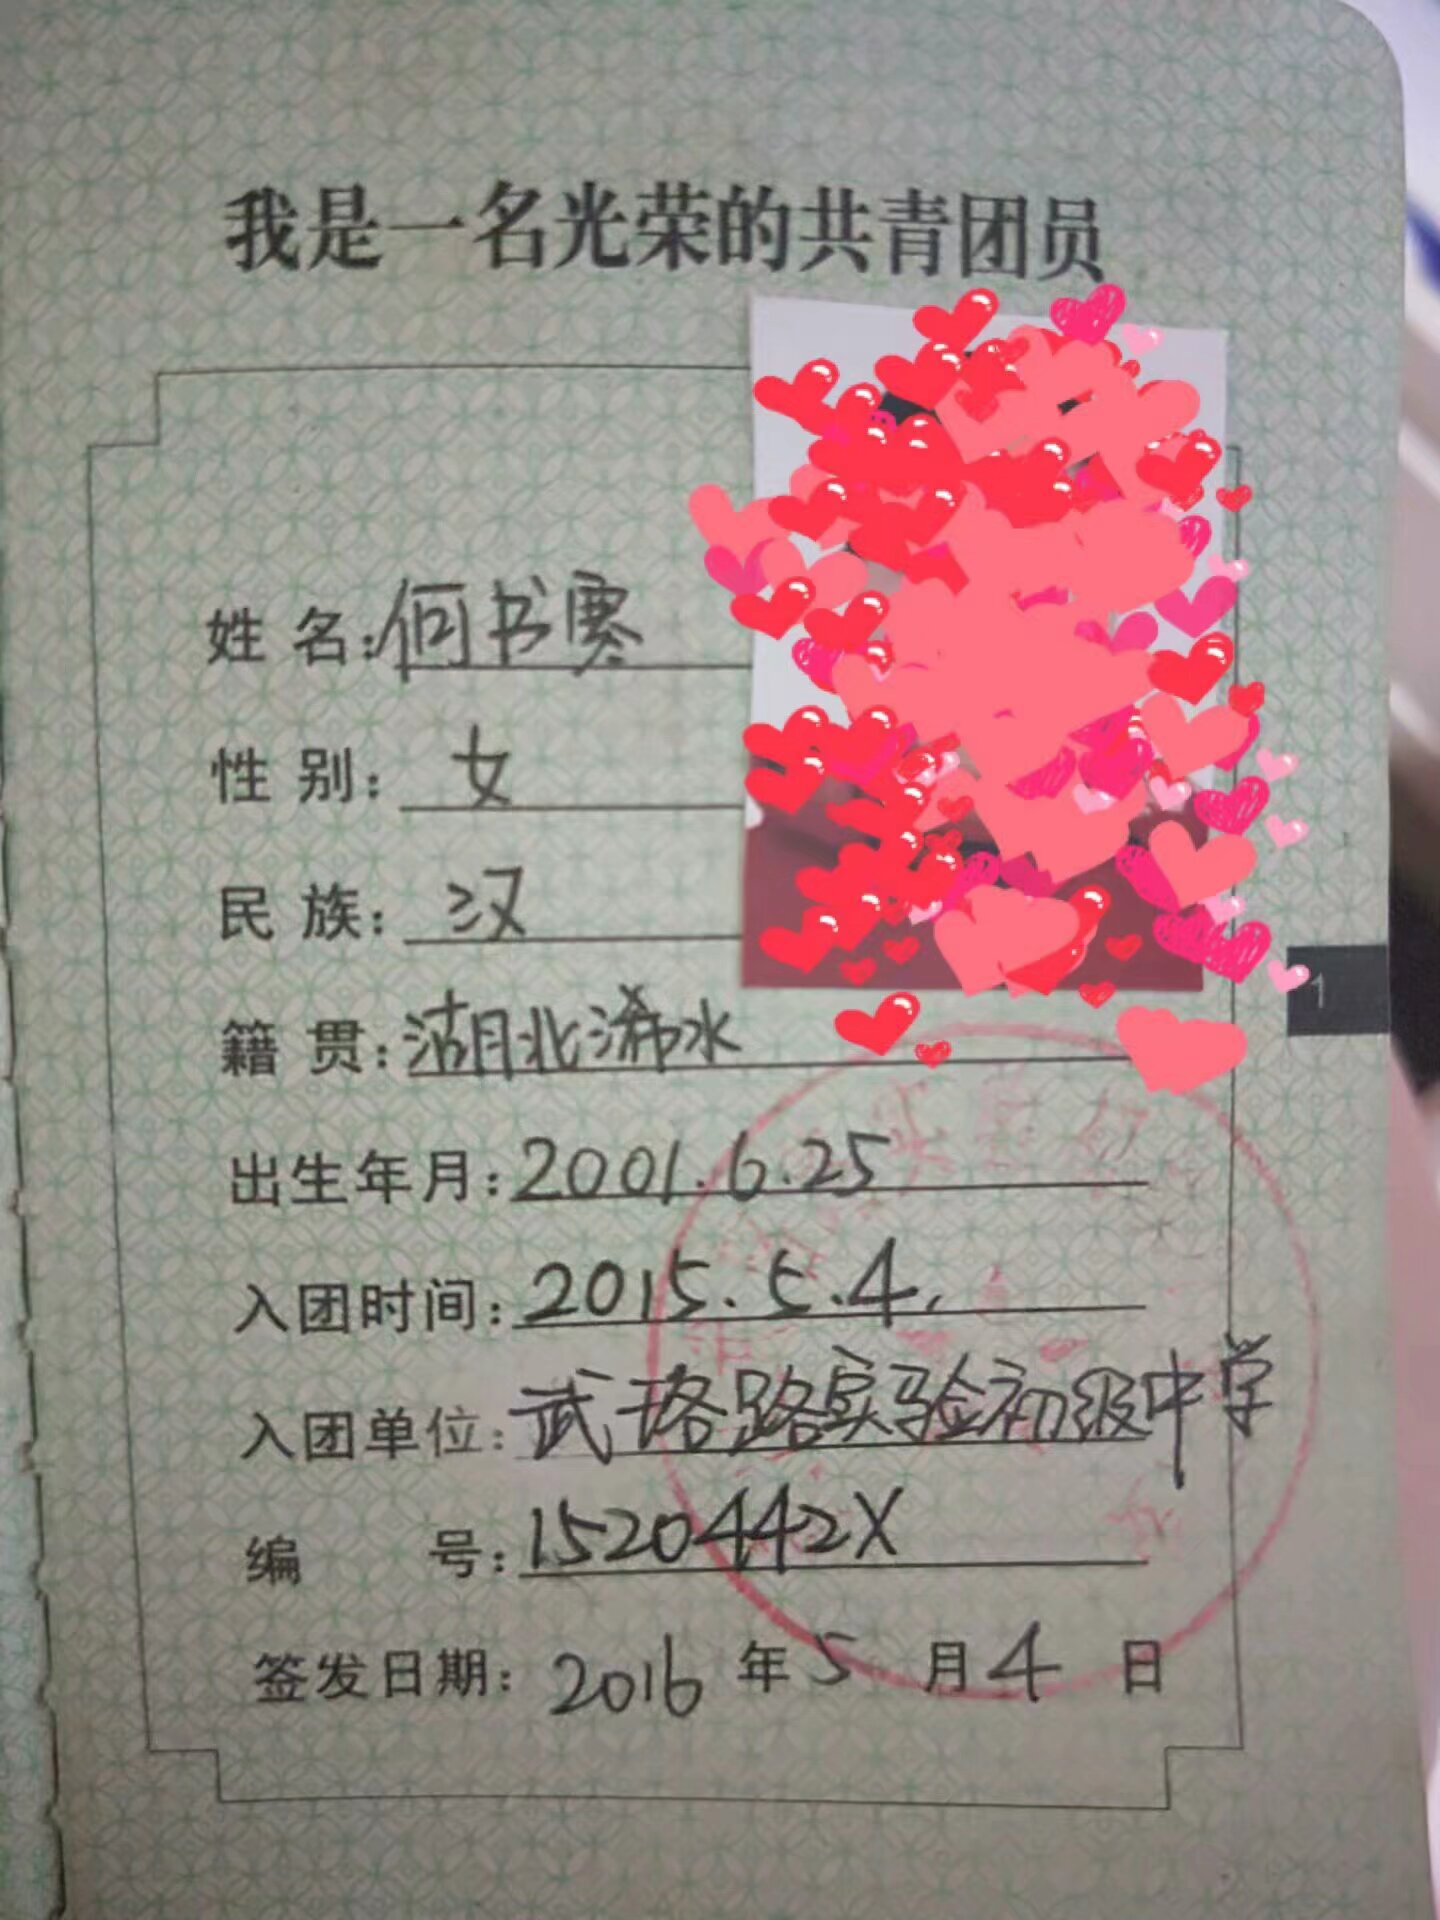 我是一名光荣的共青团员
姓 名:何书寒
性 别: 女
民 族: 汉
籍 贯:湖北浠水
1
出生年月:2001.6.25
入团时间:2015.5.4.
入团单位:武珞路实验初级中学
编 号:1520442X
签发日期: 2016 年 5 月 4 日